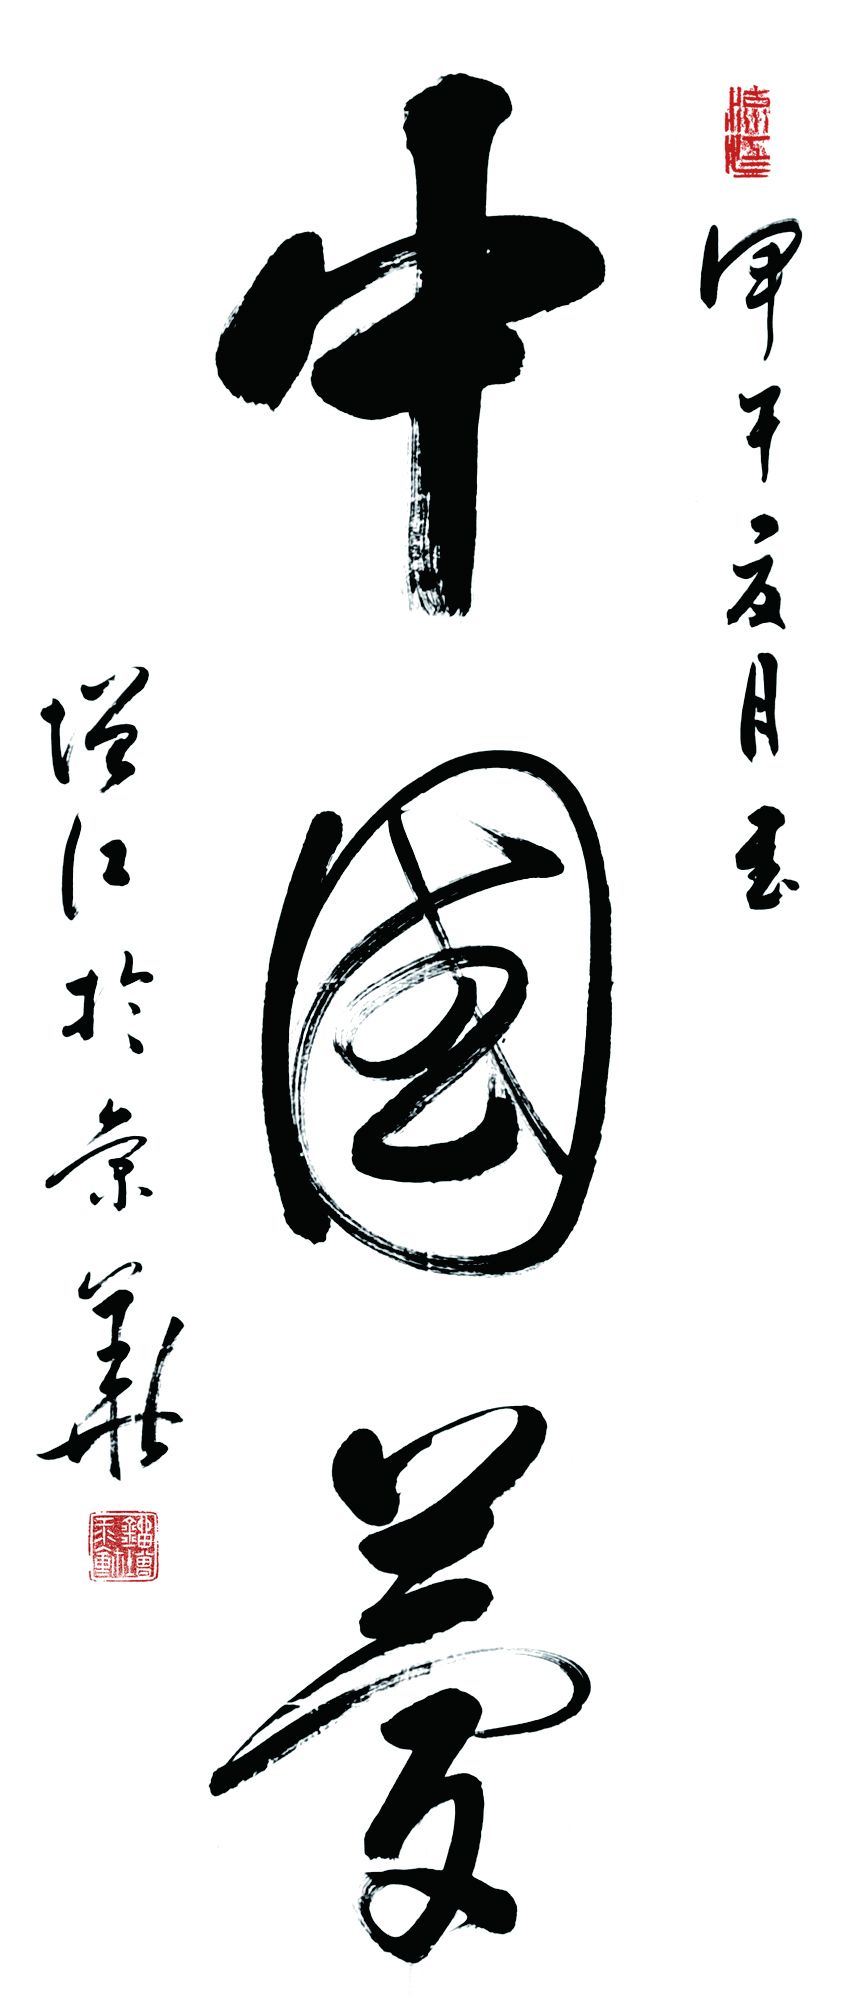 甲午夏月書
中國夢
增江於京華